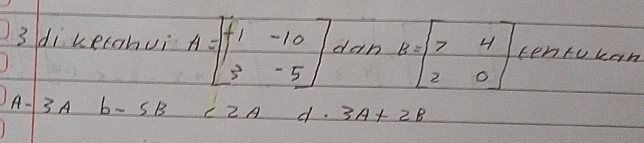 3 diketahui A = [1 -10] dan B = [7 4] tentukan
[3 -5] [2 0]
A- 3A b- 5B c 2A d. 3A + 2B